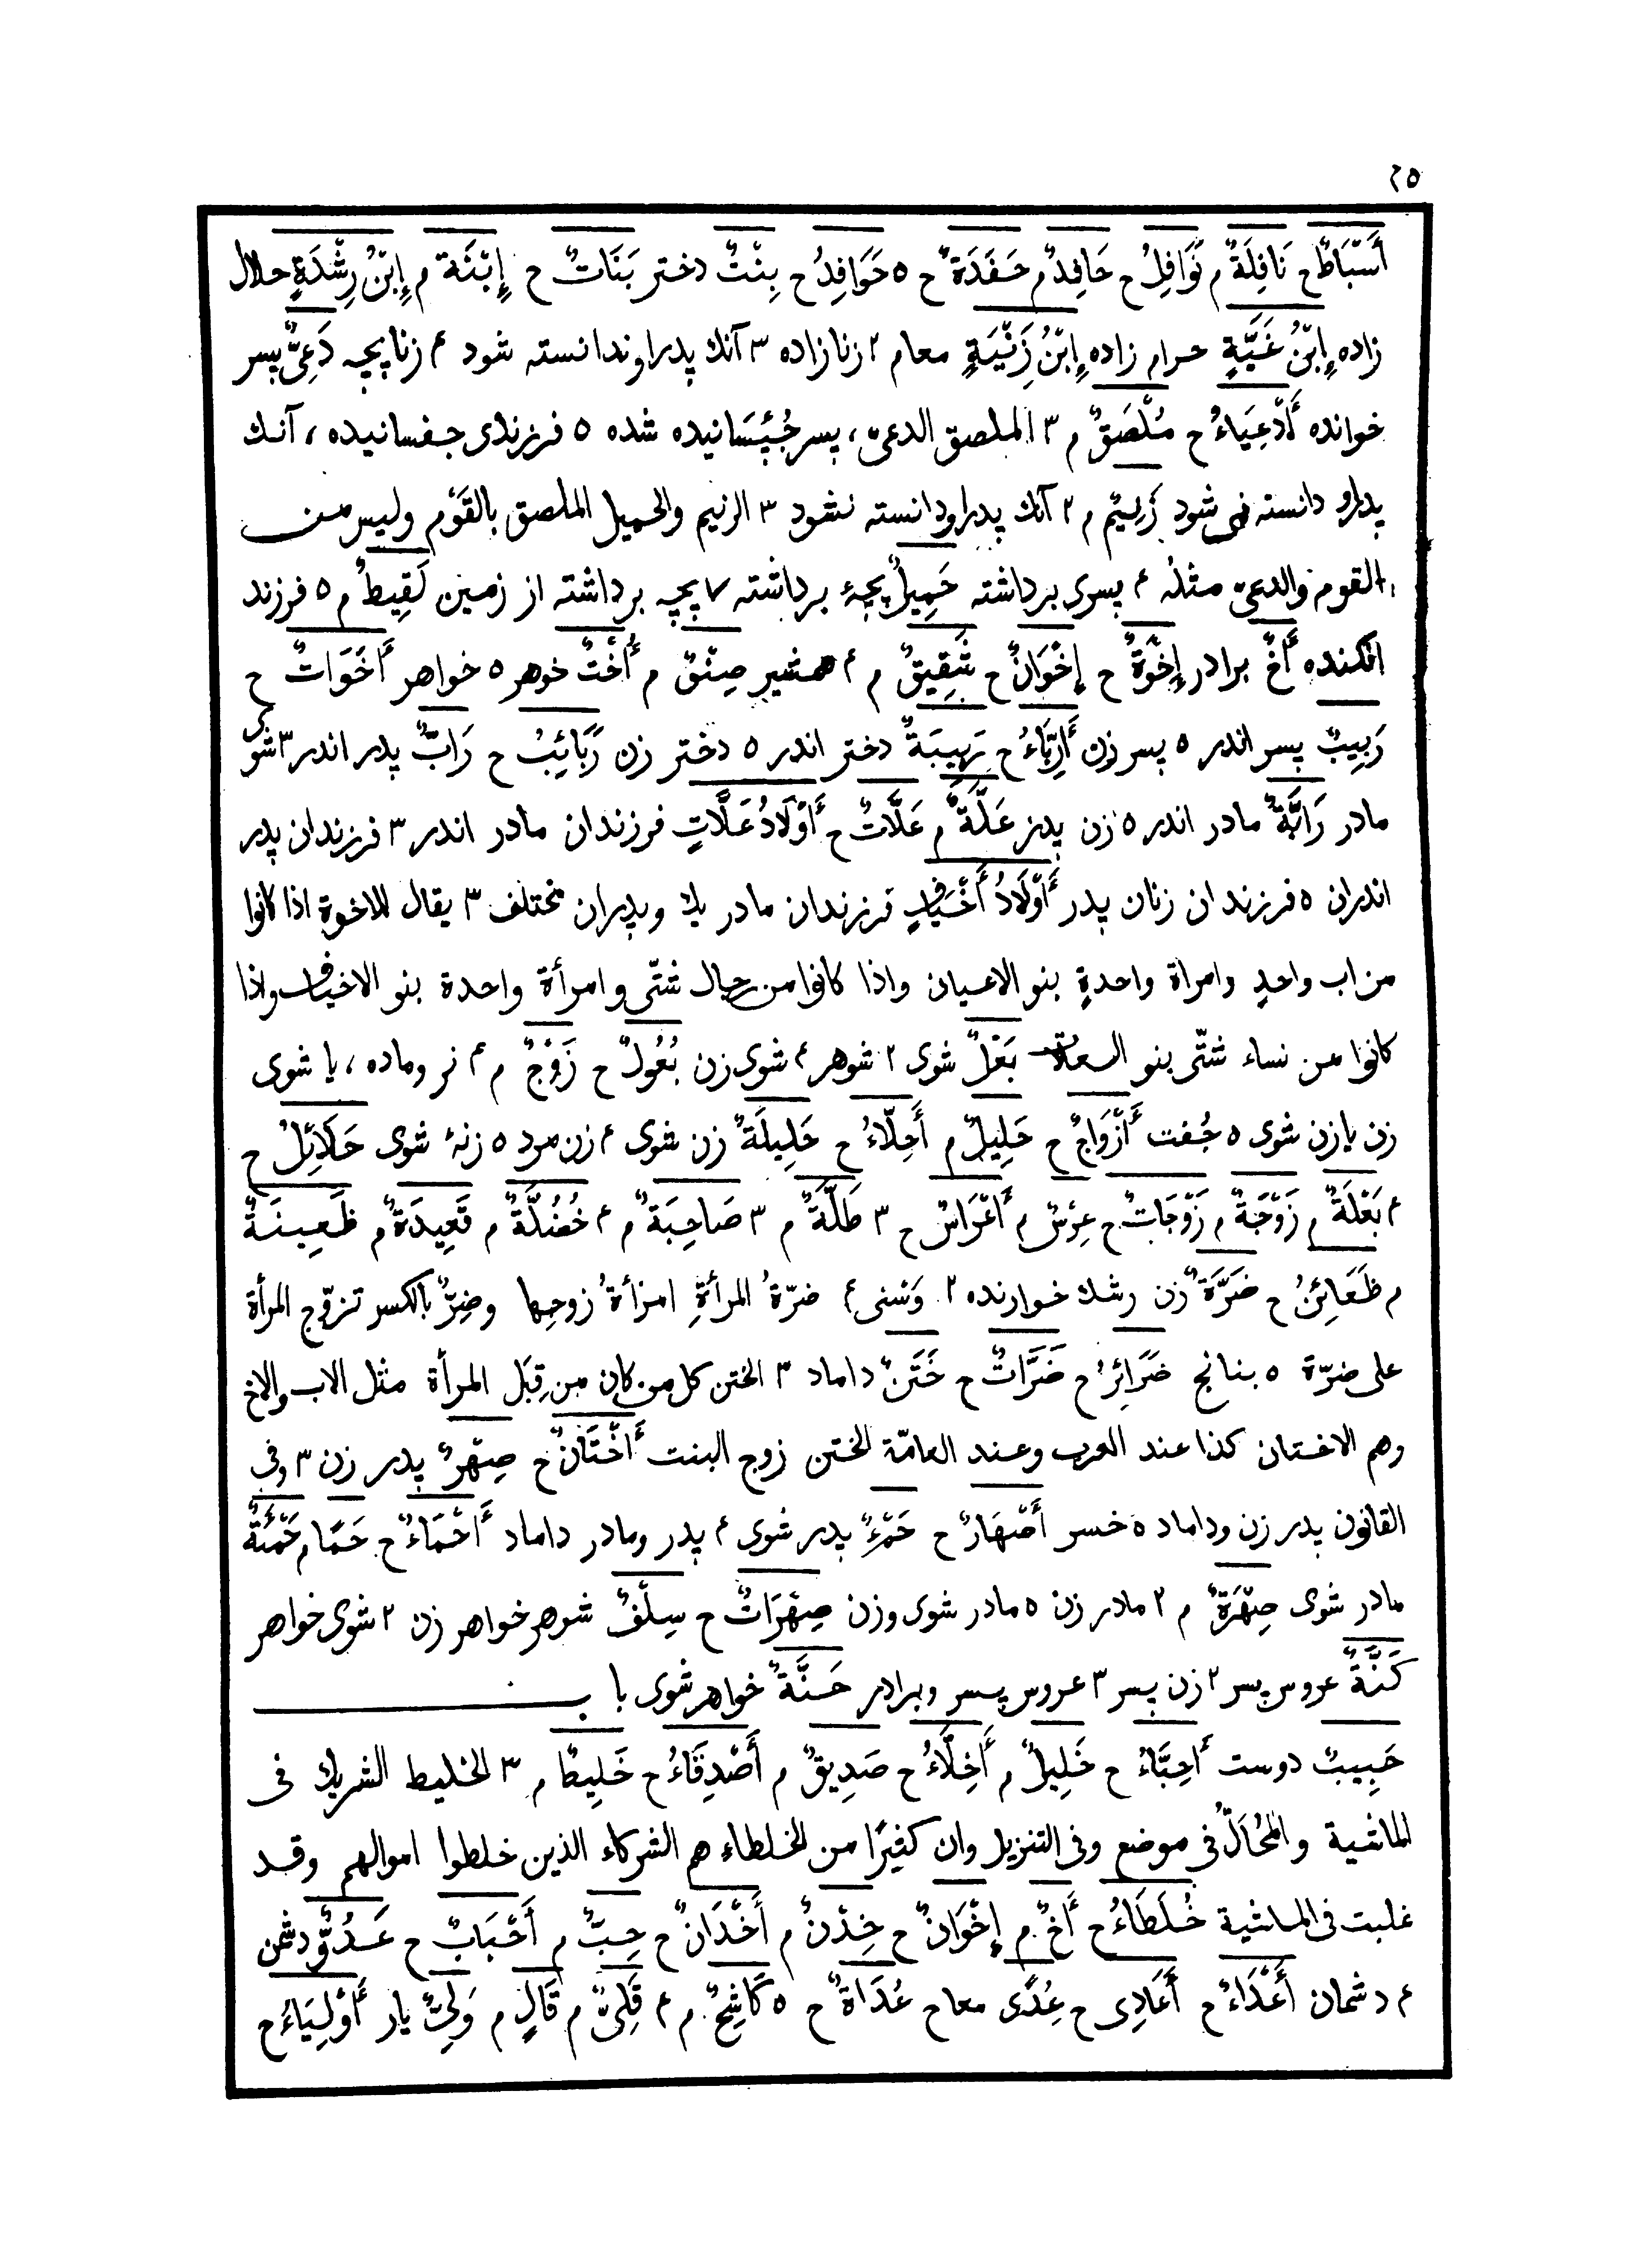 ٢٥
أَسْبَاطٌ ح نَافِلَةٌ م نَوَافِلُ ح حَافِدٌ م حَفَدَةٌ ح ٥ حَوَافِدُ ح بِنْتٌ دختر بَنَاتٌ ح إِبْنَة م إِبْنُ رِشْدَةٍ حلال
زاده إِبْنُ غَيَّةٍ حرام زاده إِبْنُ زَِنْيَةٍ معام ٢ زنا زاده ٣ آنك پدر او ندانسته شود ۴ زنا پچه دَعِىٌّ پسر
خوانده أَدْعِيَاءُ ح مُلْصَقٌ م ٣ الملصق الدعىّ ، پسر چُپْسَانيده شده ٥ فرزندى جفسانيده ، آنك
پدراو دانسته نمى شود زَنِيمٌ م ٢ آنك پدر او دانسته نشود ٣ الزنيم والحميل الملصق بالقَوْم وليس من
القوم والدعىّ مثلهُ ۴ پسرى برداشته حَمِيلٌ پچهٔ برداشته ٧ پچه برداشته از زمين لَقِيطٌ م ٥ فرزند
افكنده أَخٌ برادر إِخْوَةٌ ح إِخْوَانٌ ح شَقِيقٌ م ۴ همشير صِنْوٌ م أُخْتٌ خوهر ٥ خواهر أَخَوَاتٌ ح
رَبِيبٌ پسر اندر ٥ پسر زن أَرِبَّاءُ ح رَبِيبَةٌ دختر اندر ٥ دختر زن رَبَائِبُ ح رَابٌّ پدر اندر ٣ شوى
مادر رَابَّةٌ مادر اندر ٥ زن پدر عَلَّةٌ م عَلَّاتٌ ح أَوْلَادُ عَلَّاتٍ فرزندان مادر اندر ٣ فرزندان پدر
اندران ٥ فرزندان زنان پدر أَوْلَادُ أَخْيَافٍ فرزندان مادر يك وپدران مختلف ٣ يقال للاخوة اذا كانوا
من اب واحدٍ وامراة واحدةٍ بنو الاعيان واذا كانوا من رجال شتّى وامرأة واحدة بنو الاخياف واذا
كانوا من نساء شتّى بنو العلات بَعْلٌ شوى ٢ شوهر ۴ شوى زن بُعُولٌ ح زَوْجٌ م ۴ نر وماده ، يا شوى
زن يا زن شوى ٥ جُفت أَزْوَاجٌ ح حَلِيلٌ م أَحِلَّاءُ ح حَلِيلَةٌ زن شوى ۴ زن مرد ٥ زنهٔ شوى حَلَائِلُ ح
۴ بَعْلَةٌ م زَوْجَةٌ م زَوْجَاتٌ ح عِرْسٌ م أَعْرَاسٌ ح ٣ طَلَّةٌ م ٣ صَاحِبَةٌ م ۴ خُضُلَّةٌ م قَعِيدَةٌ م ظَعِينَةٌ
م ظَعَائِنُ ح ضَرَّةٌ زن رشك خوارنده ٢ وَسْنى ۴ ضرّةُ المرأةِ امرأةُ زوجِها وضِرٌّ بالكسر تزوّج المرأة
على ضرّة ٥ بنانج ضَرَائِرُ ح ضَرَّاتٌ ح خَتَنٌ داماد ٣ الختن كل من كان من قِبَل المرأة مثل الاب والاخ
وهم الاختان كذا عند العرب وعند العامّة الختن زوج البنت أَخْتَانٌ ح صِهْرٌ پدر زن ٣ وفى
القانون پدر زن وداماد ٥ خسر أَصْهَارٌ ح حَمْءٌ پدر شوى ۴ پدر ومادر داماد أَحْمَاءٌ ح حَمًا م حَمْئَةٌ
مادر شوى صِهْرَةٌ م ٢ مادر زن ٥ مادر شوى وزن صِهْرَاتٌ ح سِلْفٌ شوهر خواهر زن ٢ شوى خواهر
كَنَّةٌ عروس پسر ٢ زن پسر ٣ عروس پسر وبرادر حَنَّةٌ خواهر شوى باب
حَبِيبٌ دوست أَحِبَّاءُ ح خَلِيلٌ م أَخِلَّاءُ ح صَدِيقٌ م أَصْدِقَاءُ ح خَلِيطٌ م ٣ الخليط الشريك فى
الماشية والمُحَالّ فى موضع وفى التنزيل وان كثيرًا من الخلطاء هم الشركاء الذين خلطوا اموالهم وقد
غلبت فى الماشية خُلَطَاءُ ح أَخٌ م إِخْوَانٌ ح خِدْنٌ م أَخْدَانٌ ح حِبٌّ م أَحْبَابٌ ح عَدُوٌّ دشمن
۴ دشمان أَعْدَاءٌ ح أَعَادِى ح عُِدًى معا ح عُدَاةٌ ح ٥ كَاشِحٌ م ۴ قَلِىٌّ م قَالٍ م وَلِىٌّ يار أَوْلِيَاءُ ح